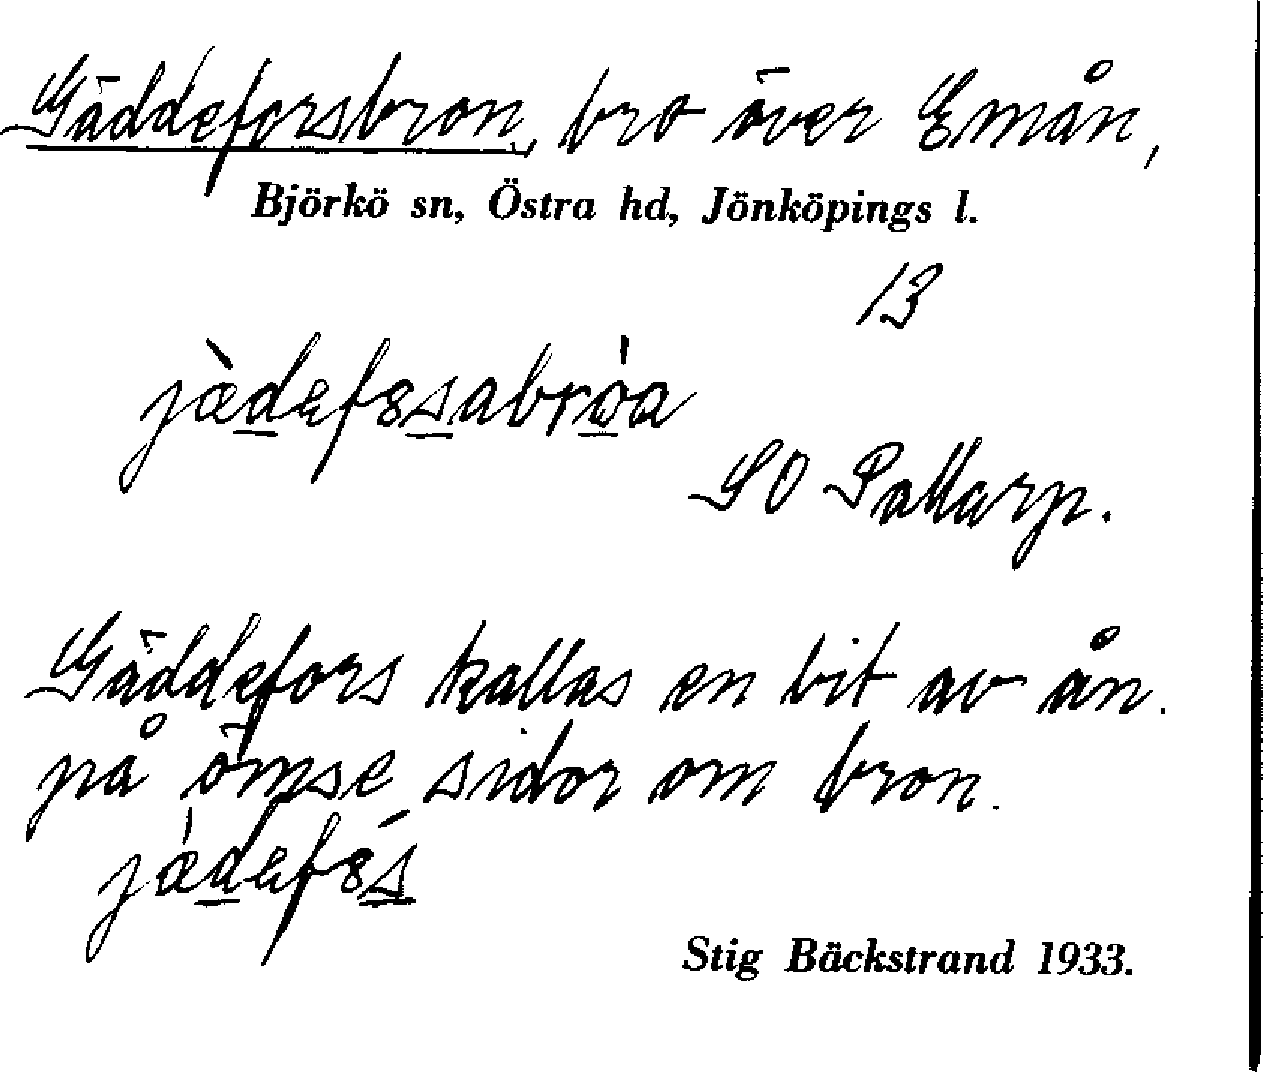 Gäddeforsbron, bro över Emån,
Björkö sn, Östra hd, Jönköpings l.
13
SO Pattarp.
Gäddefors kallas en bit av ån.
på ömse sidor om bron.
Stig Bäckstrand 1933.